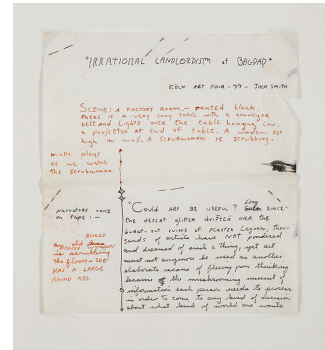 "IRRATIONAL LANDLORDISM of BAGDAD"
KÖLN ART FAIR - 77 - JACK SMITH
SCENE: A FACTORY ROOM - painted black.
THERE IS A VERY long TABLE with A conveyor
belt and Lights over the table hanging low,
a projector at end of table. A window set
high in wall. A SCRUBWOMAN IS SCRUBBING.
music plays
as we watch
the scrubwoman.
NARRATORS voice
on tape:
"Could ART BE USEFUL? Ever SINCE
the desert glitter drifted over the
burnt-out ruins of PLASTER LAGOON, thou-
sands of artists have NOT pondered
and dreamed of such a thing, yet art
must not anymore be used as another
elaborate means of fleeing from thinking
because of the mushrooming amount of
information each person needs to process
in order to come to any kind of decision
about what kind of world one wants
WOMAN
is scrubbing
the floor - SHE
HAS A LARGE
ROUND ASS.